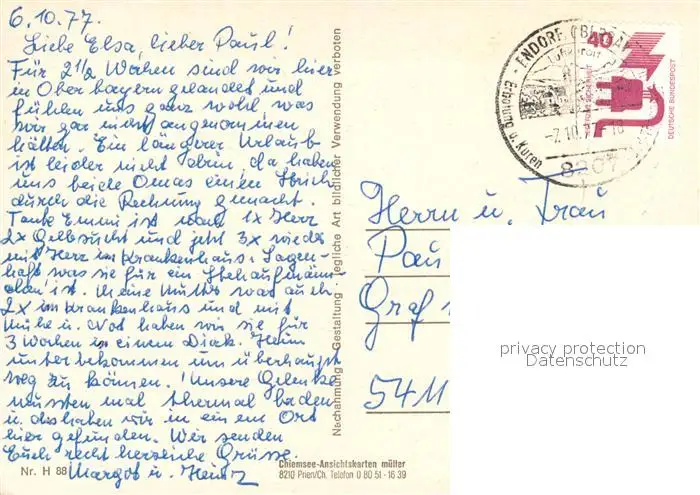 6.10.77.
Liebe Elsa, lieber Paul!
Für 2 1/2 Wochen sind wir hier
in Oberbayern gelandet und
fühlen uns ganz wohl, was
wir gar nicht angenommen
hätten. Ein längerer Urlaub
ist leider nicht drin, da haben
uns beide Omas einen Strich
durch die Rechnung gemacht.
Tante Emmi ist nach 1x Herz
2x Gelbsucht und jetzt 3x wieder
mit Herz im Krankenhaus. Sagen-
haft was sie für ein Stehaufmänn-
chen ist. Meine Mutter war auch
2x im Krankenhaus und mit
Mühe u. Not haben wir sie für
3 Wochen in einem Diak. Heim
unterbekommen um überhaupt
weg zu können. Unsere Gelenke
mussten mal thermal baden
u. das haben wir in einem Ort
hier gefunden. Wir senden
Euch recht herzliche Grüsse.
Margot u. Heinz
Nr. H 88
Nachahmung Gestaltung · jegliche Art bildlicher Verwendung verboten
Chiemsee-Ansichtskarten müller
8210 Prien/Ch. Telefon 0 80 51 - 16 39
ENDORF
Erholung u. Kuren
8207
40
DEUTSCHE BUNDESPOST
Herrn u. Frau
Pau
Graf
5411
privacy protection
Datenschutz